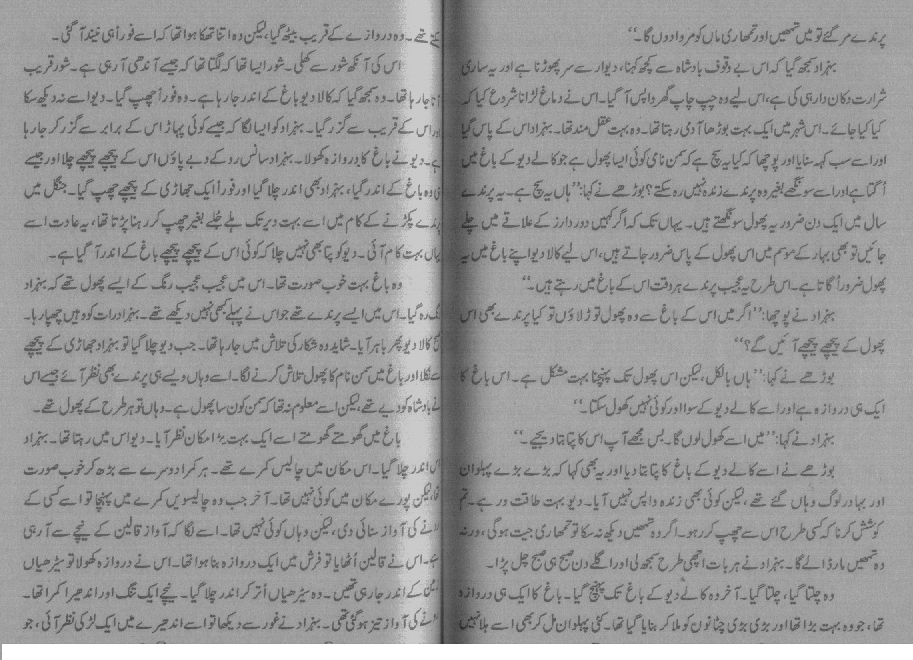 پرندے مر گئے تو میں تمھیں اور تمھاری ماں کو مروا دوں گا۔‘‘
بہزاد سمجھ گیا کہ اس بے وقوف بادشاہ سے کچھ کہنا، دیوار سے سر پھوڑنا ہے اور یہ ساری
شرارت دکان دار ہی کی ہے، اس لیے وہ چپ چاپ گھر واپس آ گیا۔ اس نے دماغ لڑانا شروع کیا کہ
کیا کیا جائے۔ اس شہر میں ایک بہت بوڑھا آدمی رہتا تھا۔ وہ بہت عقل مند تھا۔ بہزاد اس کے پاس گیا
اور اسے سب کہہ سنایا اور پوچھا کہ کیا یہ سچ ہے کہ سمن نامی کوئی ایسا پھول ہے جو کالے دیو کے باغ میں
اُگتا ہے اور اسے سونگھے بغیر وہ پرندے زندہ نہیں رہ سکتے؟ بوڑھے نے کہا: ’’ہاں یہ سچ ہے۔ یہ پرندے
سال میں ایک دن ضرور یہ پھول سونگھتے ہیں۔ یہاں تک کہ اگر کہیں دور دراز کے علاقے میں چلے
جائیں تو بھی بہار کے موسم میں اس پھول کے پاس ضرور جاتے ہیں، اس لیے کالا دیو اپنے باغ میں یہ
پھول ضرور اُگاتا ہے۔ اس طرح یہ عجیب پرندے ہر وقت اس کے باغ میں رہتے ہیں۔‘‘
بہزاد نے پوچھا: ’’اگر میں اس کے باغ سے وہ پھول توڑ لاؤں تو کیا پرندے بھی اس
پھول کے پیچھے پیچھے آئیں گے؟‘‘
بوڑھے نے کہا: ’’ہاں بالکل، لیکن اس پھول تک پہنچنا بہت مشکل ہے۔ اس باغ کا
ایک ہی دروازہ ہے اور اسے کالے دیو کے سوا اور کوئی نہیں کھول سکتا۔‘‘
بہزاد نے کہا: ’’میں اسے کھول لوں گا۔ بس مجھے آپ اس کا پتا بتا دیجیے۔‘‘
بوڑھے نے اسے کالے دیو کے باغ کا پتا بتا دیا اور یہ بھی کہا کہ بڑے بڑے پہلوان
اور بہادر لوگ وہاں گئے تھے، لیکن کوئی بھی زندہ واپس نہیں آیا۔ دیو بہت طاقت ور ہے۔ تم
کوشش کرنا کہ کسی طرح اس سے چھپ کر رہو۔ اگر وہ تمھیں دیکھ نہ سکا تو تمھاری جیت ہوگی، ورنہ
وہ تمھیں مار ڈالے گا۔ بہزاد نے ہر بات اچھی طرح سمجھ لی اور اگلے دن صبح ہی صبح چل پڑا۔
وہ چلتا گیا، چلتا گیا۔ آخر وہ کالے دیو کے باغ تک پہنچ گیا۔ باغ کا ایک ہی دروازہ
تھا، جو وہ بہت بڑا تھا اور بڑی بڑی چٹانوں کو ملا کر بنایا گیا تھا۔ کئی پہلوان مل کر بھی اسے ہلا نہیں
سکتے تھے۔ وہ دروازے کے قریب بیٹھ گیا، لیکن وہ اتنا تھکا ہوا تھا کہ اسے فوراً ہی نیند آ گئی۔
اس کی آنکھ شور سے کھلی۔ شور ایسا تھا کہ لگتا تھا کہ جیسے آندھی آ رہی ہے۔ شور قریب
آتا جا رہا تھا۔ وہ سمجھ گیا کہ کالا دیو باغ کے اندر جا رہا ہے۔ وہ فوراً چھپ گیا۔ دیو اسے نہ دیکھ سکا
اور اس کے قریب سے گزر گیا۔ بہزاد کو ایسا لگا کہ جیسے کوئی پہاڑ اس کے برابر سے گزر کر جا رہا
ہے۔ دیو نے باغ کا دروازہ کھولا۔ بہزاد سانس روکے دبے پاؤں اس کے پیچھے پیچھے چلا اور جیسے
ہی وہ باغ کے اندر گیا، بہزاد بھی اندر چلا گیا اور فوراً ایک جھاڑی کے پیچھے چھپ گیا۔ جنگل میں
پرندے پکڑنے کے کام میں اسے بہت دیر تک ہلے جلے بغیر چھپ کر رہنا پڑتا تھا، یہ عادت اسے
یہاں بہت کام آئی۔ دیو کو پتا بھی نہیں چلا کہ کوئی اس کے پیچھے پیچھے باغ کے اندر آ گیا ہے۔
وہ باغ بہت خوب صورت تھا۔ اس میں عجیب عجیب رنگ کے ایسے پھول تھے کہ بہزاد
دنگ رہ گیا۔ اس میں ایسے پرندے تھے جو اس نے پہلے کبھی نہیں دیکھے تھے۔ بہزاد رات کو وہیں چھپا رہا۔
صبح کالا دیو پھر باہر آیا۔ شاید وہ شکار کی تلاش میں جا رہا تھا۔ جب دیو چلا گیا تو بہزاد جھاڑی کے پیچھے
سے نکلا اور باغ میں سمن نام کا پھول تلاش کرنے لگا۔ اسے وہاں ویسے ہی پرندے بھی نظر آئے جیسے اس
نے بادشاہ کو دیے تھے، لیکن اسے معلوم نہ تھا کہ سمن کون سا پھول ہے۔ وہاں تو ہر طرح کے پھول تھے۔
باغ میں گھومتے گھومتے اسے ایک بہت بڑا مکان نظر آیا۔ دیو اس میں رہتا تھا۔ بہزاد
اس اندر چلا گیا۔ اس مکان میں چالیس کمرے تھے۔ ہر کمرا دوسرے سے بڑھ کر خوب صورت
تھا، لیکن پورے مکان میں کوئی نہیں تھا۔ آخر جب وہ چالیسویں کمرے میں پہنچا تو اسے کسی کے
کی آواز سنائی دی، لیکن وہاں کوئی نہیں تھا۔ اسے لگا کہ آواز قالین کے نیچے سے آ رہی
ہے۔ اس نے قالین اُٹھایا تو فرش میں ایک دروازہ بنا ہوا تھا۔ اس نے دروازہ کھولا تو سیڑھیاں
کے اندر جا رہی تھیں۔ وہ سیڑھیاں اُتر کر اندر چلا گیا۔ نیچے ایک تنگ اور اندھیرا کمرا تھا۔
کی آواز تیز ہو گئی تھی۔ بہزاد نے غور سے دیکھا تو اسے اندھیرے میں ایک لڑکی نظر آئی، جو